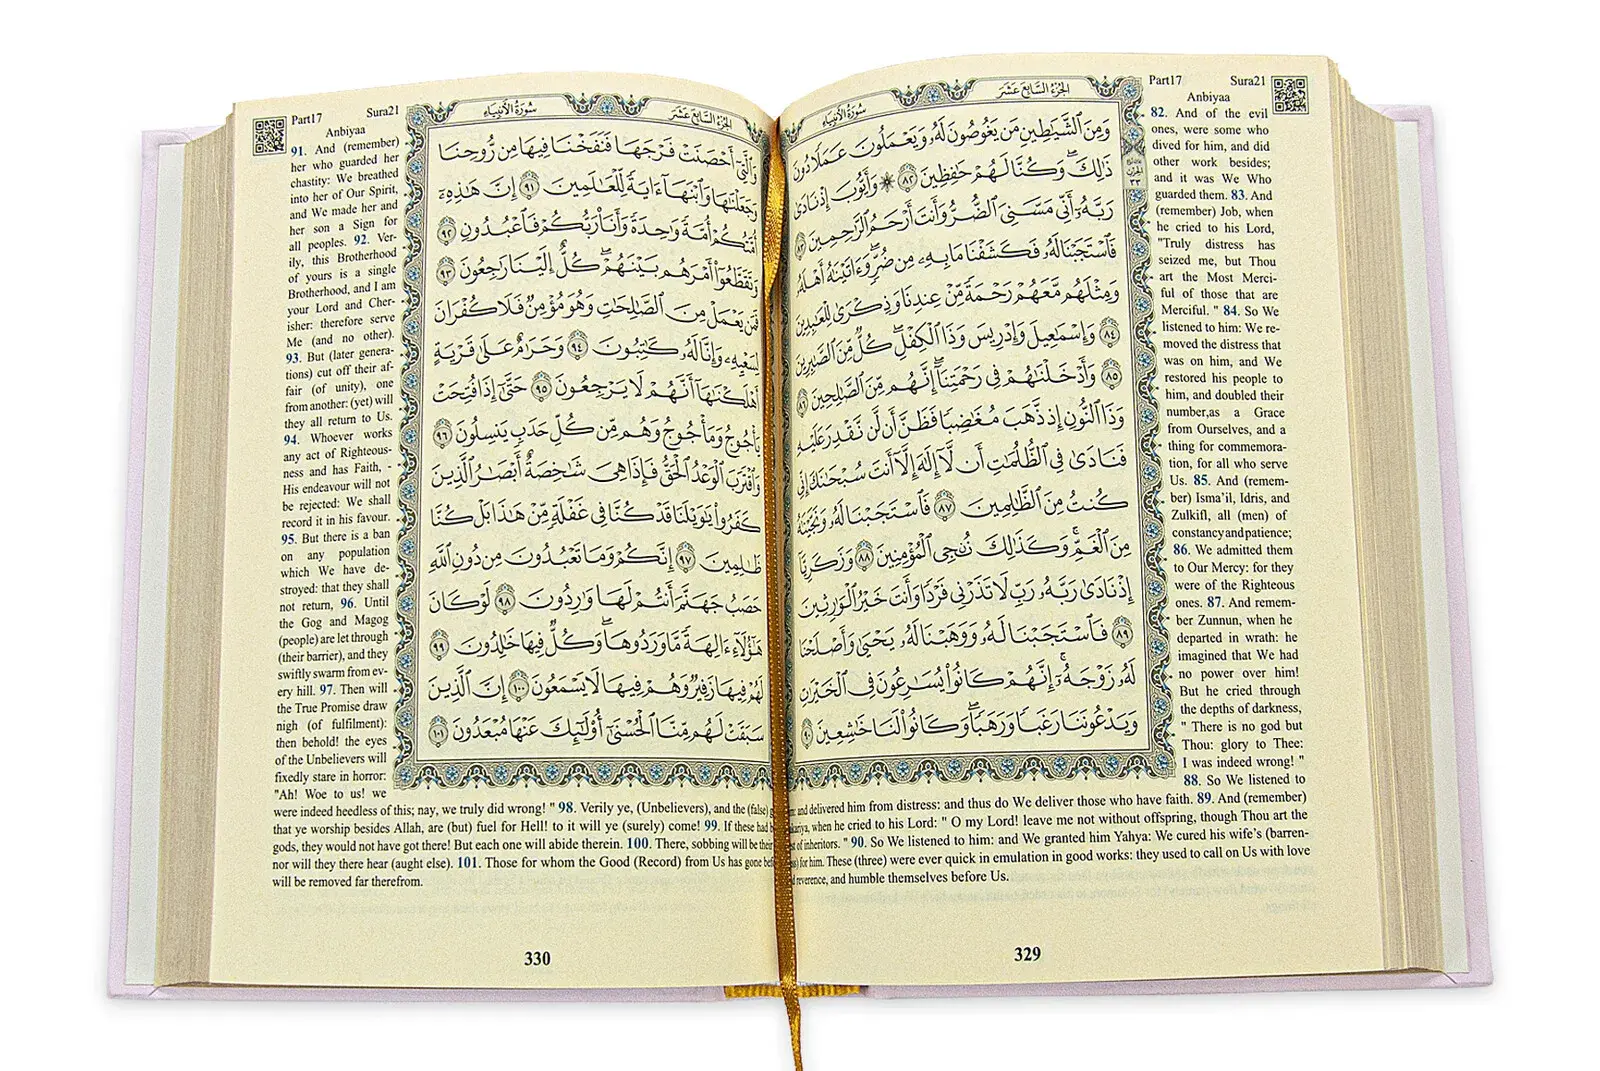 Part17 Sura21
Anbiyaa
الجُزْءُ السَّابِعَ عَشَرَ
سُورَةُ الأَنْبِيَاءِ
وَمِنَ ٱلشَّيَٰطِينِ مَن يَغُوصُونَ لَهُۥ وَيَعْمَلُونَ عَمَلًا دُونَ
ذَٰلِكَۖ وَكُنَّا لَهُمْ حَٰفِظِينَ ٨٢ ۞ وَأَيُّوبَ إِذْ نَادَىٰ
رَبَّهُۥٓ أَنِّي مَسَّنِيَ ٱلضُّرُّ وَأَنتَ أَرْحَمُ ٱلرَّٰحِمِينَ ٨٣
فَٱسْتَجَبْنَا لَهُۥ فَكَشَفْنَا مَا بِهِۦ مِن ضُرٍّۖ وَءَاتَيْنَٰهُ أَهْلَهُۥ
وَمِثْلَهُم مَّعَهُمْ رَحْمَةً مِّنْ عِندِنَا وَذِكْرَىٰ لِلْعَٰبِدِينَ
٨٤ وَإِسْمَٰعِيلَ وَإِدْرِيسَ وَذَا ٱلْكِفْلِۖ كُلٌّ مِّنَ ٱلصَّٰبِرِينَ
٨٥ وَأَدْخَلْنَٰهُمْ فِي رَحْمَتِنَآۖ إِنَّهُم مِّنَ ٱلصَّٰلِحِينَ ٨٦
وَذَا ٱلنُّونِ إِذ ذَّهَبَ مُغَٰضِبًا فَظَنَّ أَن لَّن نَّقْدِرَ عَلَيْهِ
فَنَادَىٰ فِي ٱلظُّلُمَٰتِ أَن لَّآ إِلَٰهَ إِلَّآ أَنتَ سُبْحَٰنَكَ إِنِّي
كُنتُ مِنَ ٱلظَّٰلِمِينَ ٨٧ فَٱسْتَجَبْنَا لَهُۥ وَنَجَّيْنَٰهُ
مِنَ ٱلْغَمِّۚ وَكَذَٰلِكَ نُـۨجِي ٱلْمُؤْمِنِينَ ٨٨ وَزَكَرِيَّآ
إِذْ نَادَىٰ رَبَّهُۥ رَبِّ لَا تَذَرْنِي فَرْدًا وَأَنتَ خَيْرُ ٱلْوَٰرِثِينَ
٨٩ فَٱسْتَجَبْنَا لَهُۥ وَوَهَبْنَا لَهُۥ يَحْيَىٰ وَأَصْلَحْنَا
لَهُۥ زَوْجَهُۥٓۚ إِنَّهُمْ كَانُوا۟ يُسَٰرِعُونَ فِي ٱلْخَيْرَٰتِ
وَيَدْعُونَنَا رَغَبًا وَرَهَبًاۖ وَكَانُوا۟ لَنَا خَٰشِعِينَ ٩٠
82. And of the evil
ones, were some who
dived for him, and did
other work besides;
and it was We Who
guarded them. 83. And
(remember) Job, when
he cried to his Lord,
"Truly distress has
seized me, but Thou
art the Most Merci-
ful of those that are
Merciful. " 84. So We
listened to him: We re-
moved the distress that
was on him, and We
restored his people to
him, and doubled their
number,as a Grace
from Ourselves, and a
thing for commemora-
tion, for all who serve
Us. 85. And (remem-
ber) Isma'il, Idris, and
Zulkifl, all (men) of
constancy and patience;
86. We admitted them
to Our Mercy: for they
were of the Righteous
ones. 87. And remem-
ber Zunnun, when he
departed in wrath: he
imagined that We had
no power over him!
But he cried through
the depths of darkness,
" There is no god but
Thou: glory to Thee:
I was indeed wrong! "
88. So We listened to
and delivered him from distress: and thus do We deliver those who have faith. 89. And (remember)
when he cried to his Lord: " O my Lord! leave me not without offspring, though Thou art the
of inheritors. " 90. So We listened to him: and We granted him Yahya: We cured his wife's (barren-
for him. These (three) were ever quick in emulation in good works: they used to call on Us with love
reverence, and humble themselves before Us.
329
Part17 Sura21
Anbiyaa
الجُزْءُ السَّابِعَ عَشَرَ
سُورَةُ الأَنْبِيَاءِ
وَٱلَّتِيٓ أَحْصَنَتْ فَرْجَهَا فَنَفَخْنَا فِيهَا مِن رُّوحِنَا
وَجَعَلْنَٰهَا وَٱبْنَهَآ ءَايَةً لِّلْعَٰلَمِينَ ٩١ إِنَّ هَٰذِهِۦٓ
أُمَّتُكُمْ أُمَّةً وَٰحِدَةً وَأَنَا۠ رَبُّكُمْ فَٱعْبُدُونِ ٩٢
وَتَقَطَّعُوٓا۟ أَمْرَهُم بَيْنَهُمْۖ كُلٌّ إِلَيْنَا رَٰجِعُونَ ٩٣
فَمَن يَعْمَلْ مِنَ ٱلصَّٰلِحَٰتِ وَهُوَ مُؤْمِنٌ فَلَا كُفْرَانَ
لِسَعْيِهِۦ وَإِنَّا لَهُۥ كَٰتِبُونَ ٩٤ وَحَرَٰمٌ عَلَىٰ قَرْيَةٍ
أَهْلَكْنَٰهَآ أَنَّهُمْ لَا يَرْجِعُونَ ٩٥ حَتَّىٰٓ إِذَا فُتِحَتْ
يَأْجُوجُ وَمَأْجُوجُ وَهُم مِّن كُلِّ حَدَبٍ يَنسِلُونَ ٩٦
وَٱقْتَرَبَ ٱلْوَعْدُ ٱلْحَقُّ فَإِذَا هِيَ شَٰخِصَةٌ أَبْصَٰرُ ٱلَّذِينَ
كَفَرُوا۟ يَٰوَيْلَنَا قَدْ كُنَّا فِي غَفْلَةٍ مِّنْ هَٰذَا بَلْ كُنَّا
ظَٰلِمِينَ ٩٧ إِنَّكُمْ وَمَا تَعْبُدُونَ مِن دُونِ ٱللَّهِ
حَصَبُ جَهَنَّمَ أَنتُمْ لَهَا وَٰرِدُونَ ٩٨ لَوْ كَانَ
هَٰٓؤُلَآءِ ءَالِهَةً مَّا وَرَدُوهَاۖ وَكُلٌّ فِيهَا خَٰلِدُونَ ٩٩
لَهُمْ فِيهَا زَفِيرٌ وَهُمْ فِيهَا لَا يَسْمَعُونَ ١٠٠ إِنَّ ٱلَّذِينَ
سَبَقَتْ لَهُم مِّنَّا ٱلْحُسْنَىٰٓ أُو۟لَٰٓئِكَ عَنْهَا مُبْعَدُونَ ١٠١
91. And (remember)
her who guarded her
chastity: We breathed
into her of Our Spirit,
and We made her and
her son a Sign for
all peoples. 92. Ver-
ily, this Brotherhood
of yours is a single
Brotherhood, and I am
your Lord and Cher-
isher: therefore serve
Me (and no other).
93. But (later genera-
tions) cut off their af-
fair (of unity), one
from another: (yet) will
they all return to Us.
94. Whoever works
any act of Righteous-
ness and has Faith, -
His endeavour will not
be rejected: We shall
record it in his favour.
95. But there is a ban
on any population
which We have de-
stroyed: that they shall
not return, 96. Until
the Gog and Magog
(people) are let through
(their barrier), and they
swiftly swarm from ev-
ery hill. 97. Then will
the True Promise draw
nigh (of fulfilment):
then behold! the eyes
of the Unbelievers will
fixedly stare in horror:
"Ah! Woe to us! we
were indeed heedless of this; nay, we truly did wrong! " 98. Verily ye, (Unbelievers), and the (false)
that ye worship besides Allah, are (but) fuel for Hell! to it will ye (surely) come! 99. If these had
gods, they would not have got there! But each one will abide therein. 100. There, sobbing will be their
nor will they there hear (aught else). 101. Those for whom the Good (Record) from Us has gone
will be removed far therefrom.
330